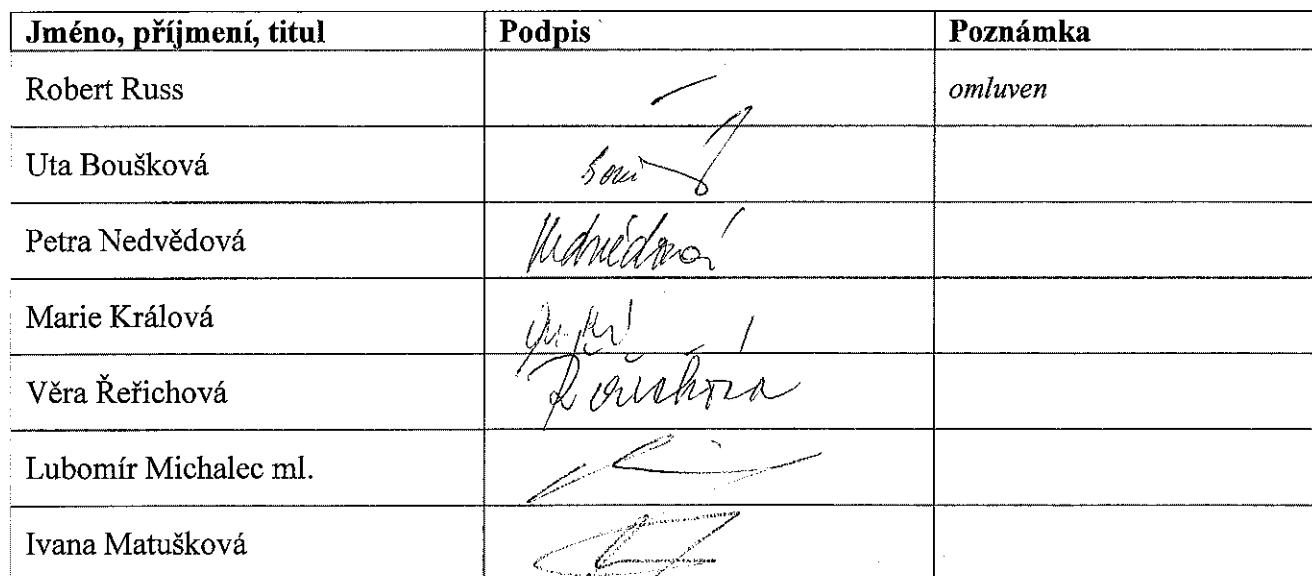 Jméno, příjmení, titul Podpis Poznámka
Robert Russ omluven
Uta Boušková
Petra Nedvědová Nedvědová
Marie Králová
Věra Řeřichová Řeřichová
Lubomír Michalec ml.
Ivana Matušková